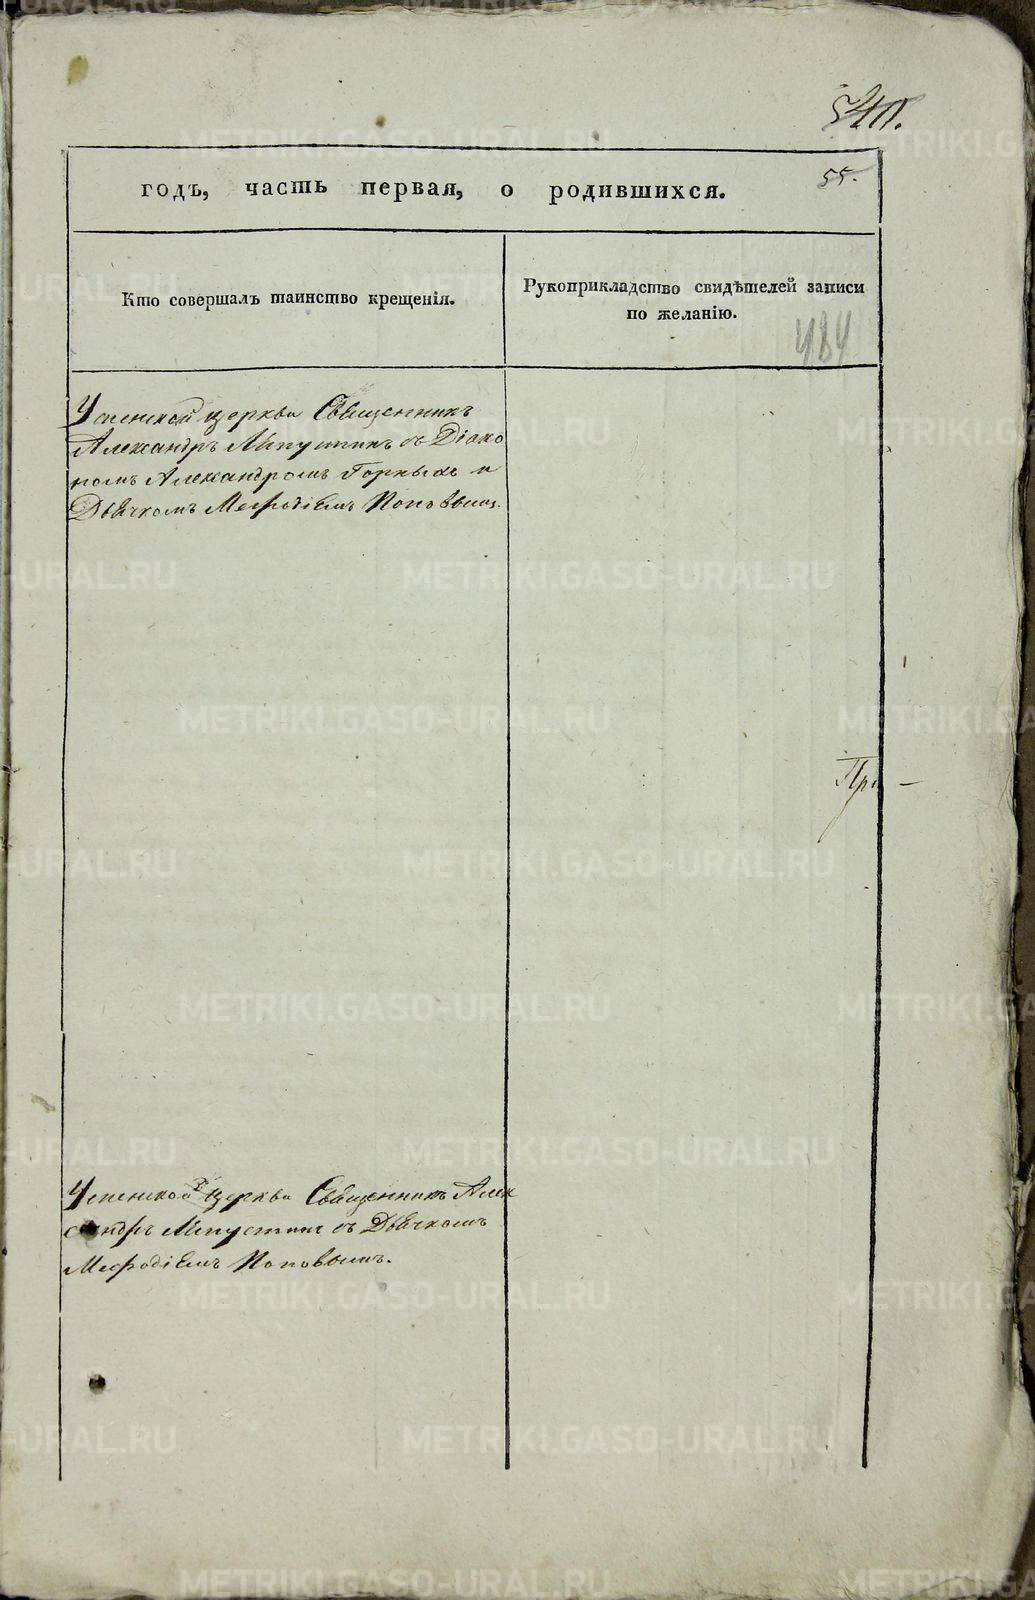 540.
55.
годъ, часть первая, о родившихся.
Кто совершалъ таинство крещенія.
Рукоприкладство свидѣтелей записи
по желанію.
484
Успенской церкви Священникъ
Александръ съ Діако
номъ Александромъ Горныхъ и
Дьячкомъ Меѳодіемъ Поповымъ.
При
Успенской церкви Священникъ Алек
сандръ съ Дьячкомъ
Меѳодіемъ Поповымъ.
METRIKI.GASO-URAL.RU